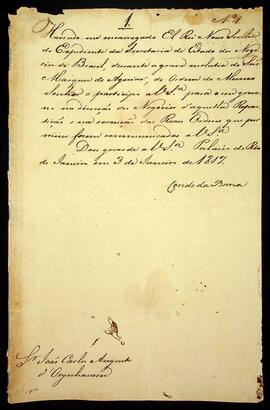 1
N.º 1
Havendo me encarregado El Rei Nosso Senhor
do Expediente da Secretaria de Estado dos Nego
cios do Brasil, durante a grave molestia do
Marquez de Aguiar, de Ordem do Mesmo
Senhor o participo a V S.ª para o me
na direcção dos Negocios d'aquella Repar
tição e na execução das Reaes Ordens que por
mim forem communicadas a V S.ª
Deos guarde a V S.ª Palacio do Rio
de Janeiro em 3 de Janeiro de 1817.
Conde da Barca
Sr. João Carlos Augusto
d'Oeynhausen